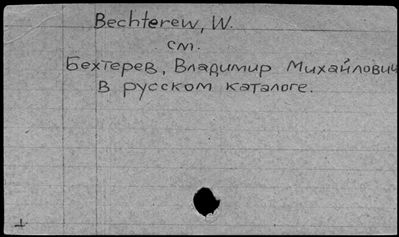 Bechterew, W.
см.
Бехтерев, Владимир Михайлович
в русском каталоге.